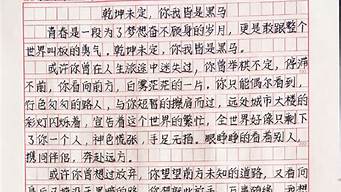 乾坤未定，你我皆是黑马
青春是一段为了梦想奋不顾身的岁月，更是敢跟整个
世界叫板的勇气。乾坤未定，你我皆是黑马。
或许你曾在人生旅途中迷失过，你曾举棋不定，停滞
不前，你看向前方，白雾茫茫的一片，你只能偶尔看到，
行色匆匆的路人，与你短暂的擦肩而过，远处城市大楼的
彩灯闪烁着，宣告着这个世界的繁忙，全世界好像只剩下
了你一个人，神色慌张，手足无措。眼睁睁的看着别人，
携同伴侣，奔赴远方。
或许你曾想过放弃，你望望前方未知的道路，又看向